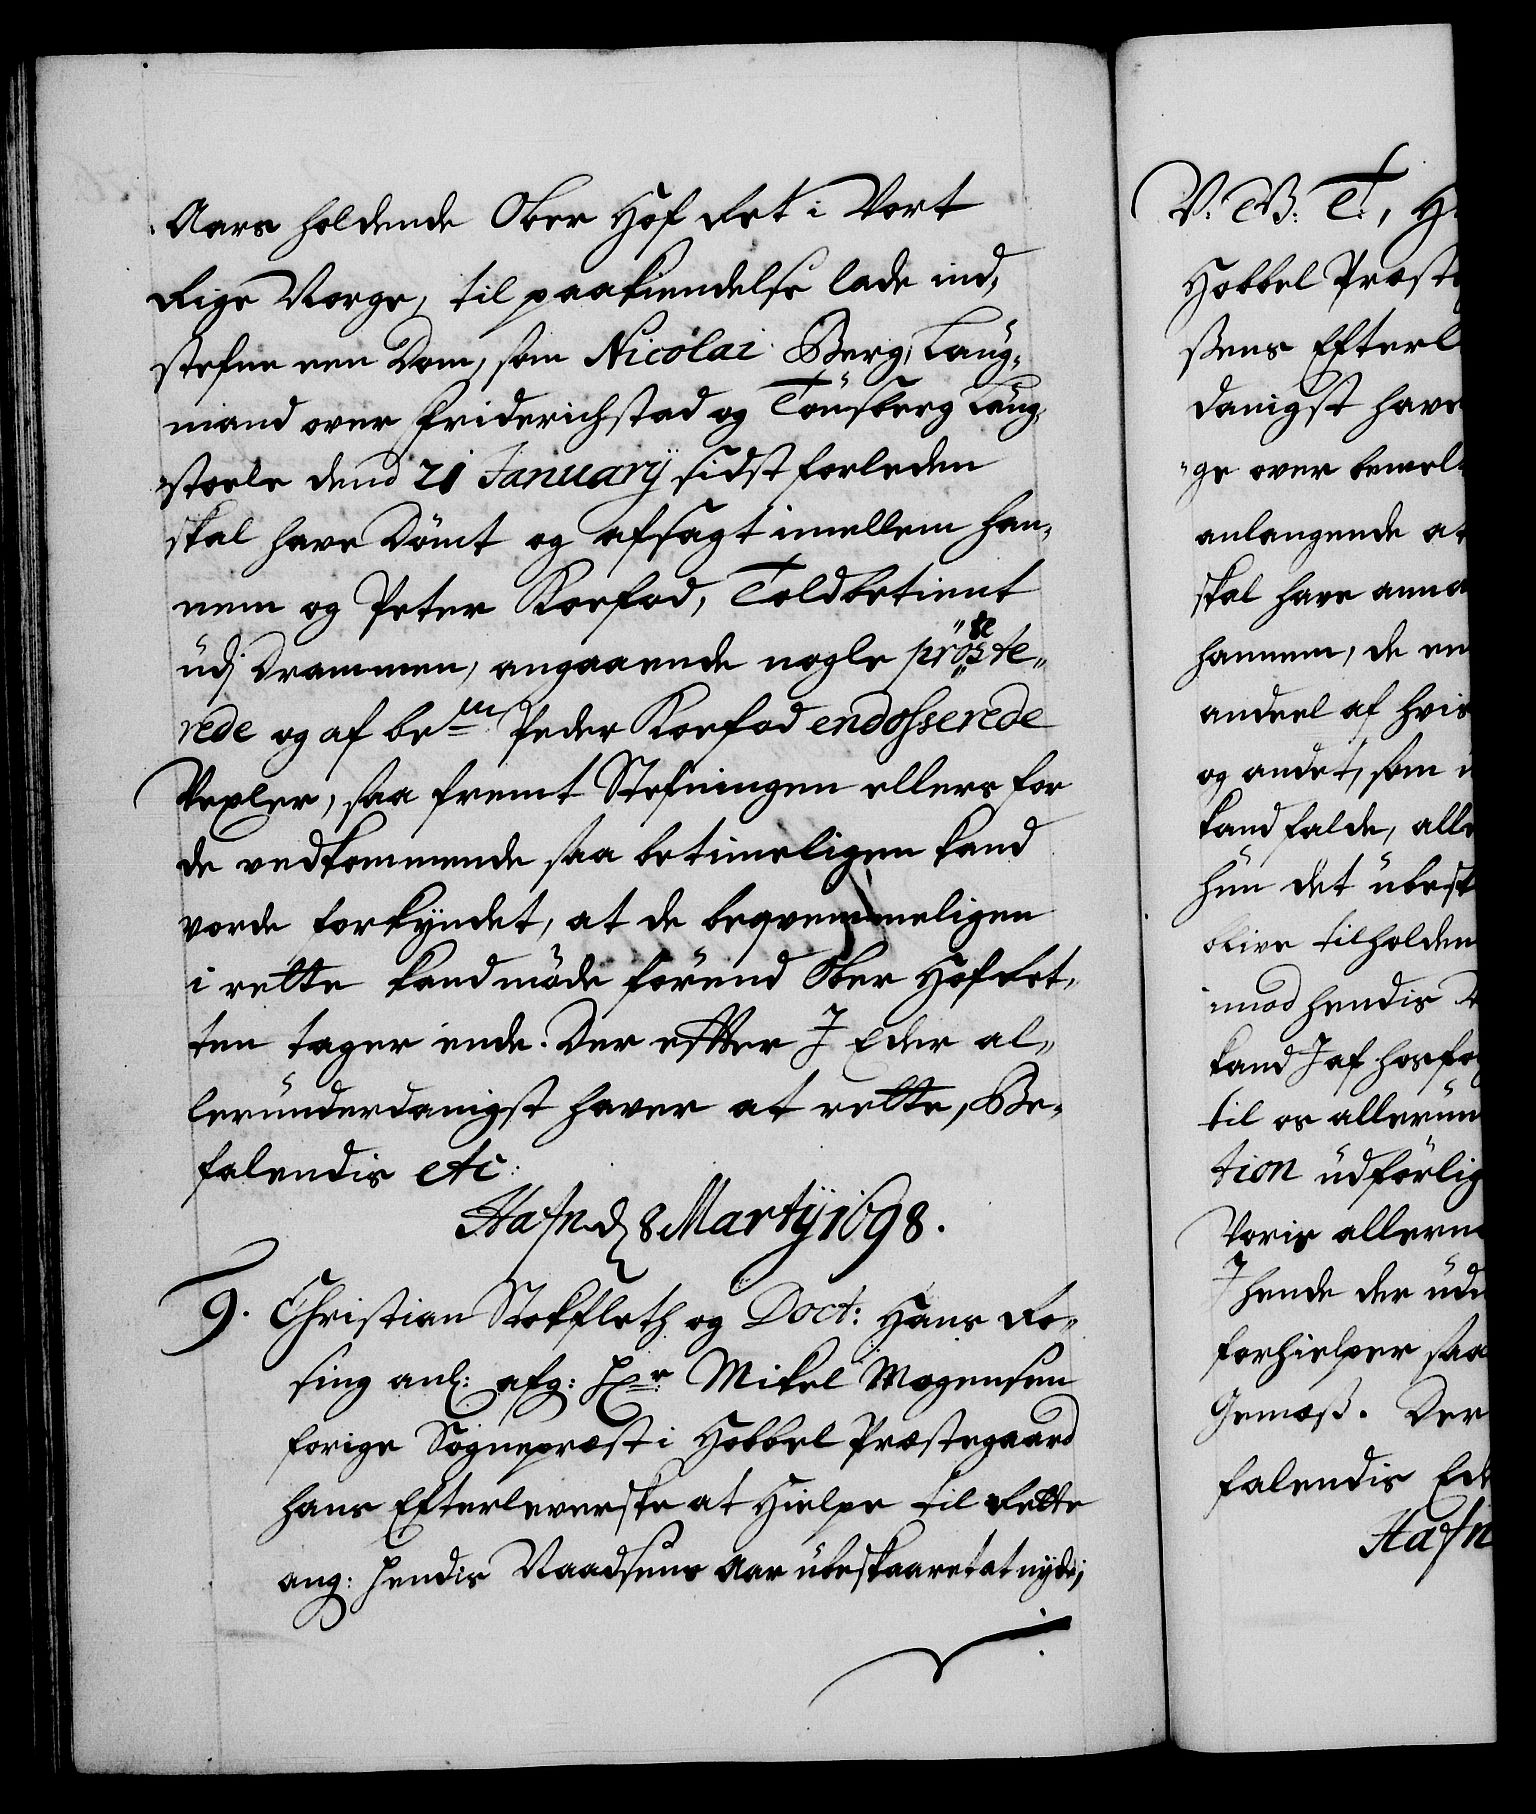 Aars holdende Ober Hof Ret i Vort
Rige Norge, til paakiendelse lade ind,,
stefne een Dom, som Nicolai Berg, Laug,,
mand over Friderichstad og Tønsberg Laug,,
stoele dend 21 Januarij sidst forleden
skal have Dömt og afsagt imellem han,,
nem og Peter Korfod, Toldbetient
udj Drammen, angaaende nogle pröste,,
rede og af bem Peder Korfod endosserede
Vexler, saa fremt Stefningen ellers for
de vedkommende saa betimeligen kand
vorde forkyndet, at de beqvemmeligen
i rette kand möde förend Ober Hof Ret,,
ten tager ende. Der effter I Eder al,,
lerunderdanigst haver at rette, Be,,
falendis etc:
Hafn d 8 Martij 1698.
9. Christian Stokfleth og Doct: Hans Ro,,
sing anl: afg: Hr Mikel Mogensen
forige Sogneprest i Hobbel Præstegaard
hans Efterleverske at Hielpe til Rette
ang: hendis Naadsens Aar ubeskaaret at nyde,
V. G. T., H
Hobbel Præst
ßens Efterl
danigst have
ge over bemel
anlangende at
skal have anna
hannem, de en
andeel af hvis
og andet, som i
kand falde, alle
hun det ubesk
blive tilholden
imod hendis
kand I af hosfø
til os allerun
tion udförlig
Voris allern
I hende der udi
forhielper saa
Gemæß. Der
falendis Ed
Hafn